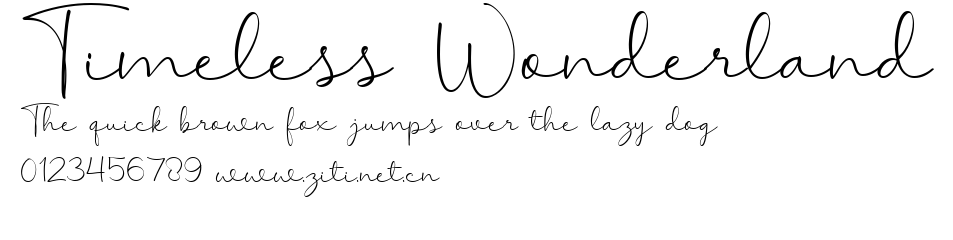 Timeless Wonderland
The quick brown fox jumps over the lazy dog
0123456789 www.ziti.net.cn